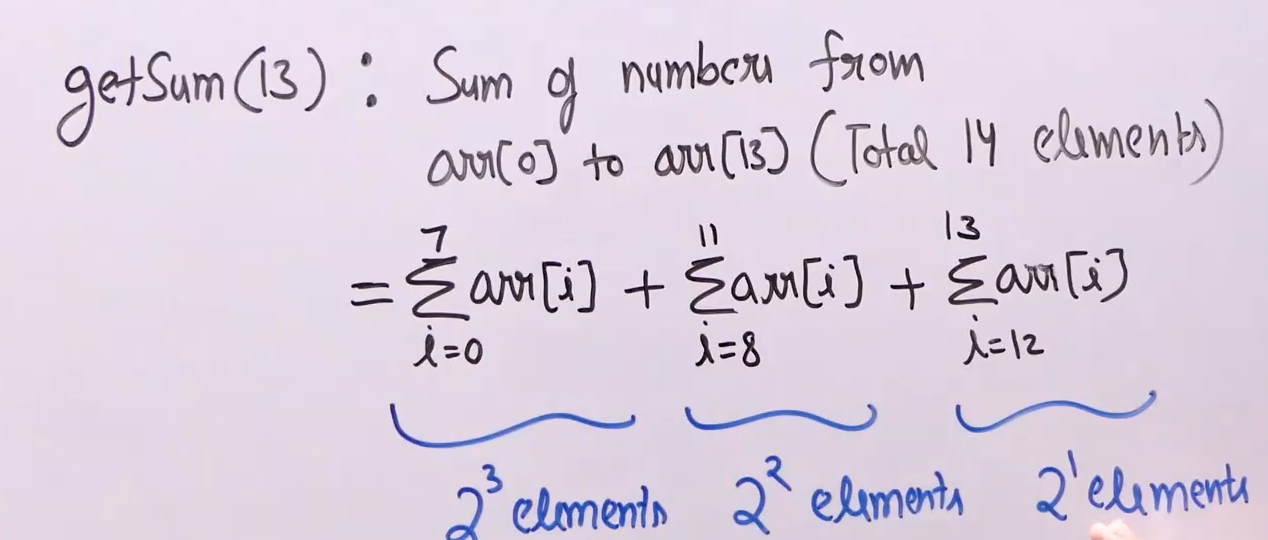 getSum(13) : Sum of numbers from
arr[0] to arr[13] (Total 14 elements)
= 7∑i=0 arr[i] + 11∑i=8 arr[i] + 13∑i=12 arr[i]
2³ elements 2² elements 2¹ elements